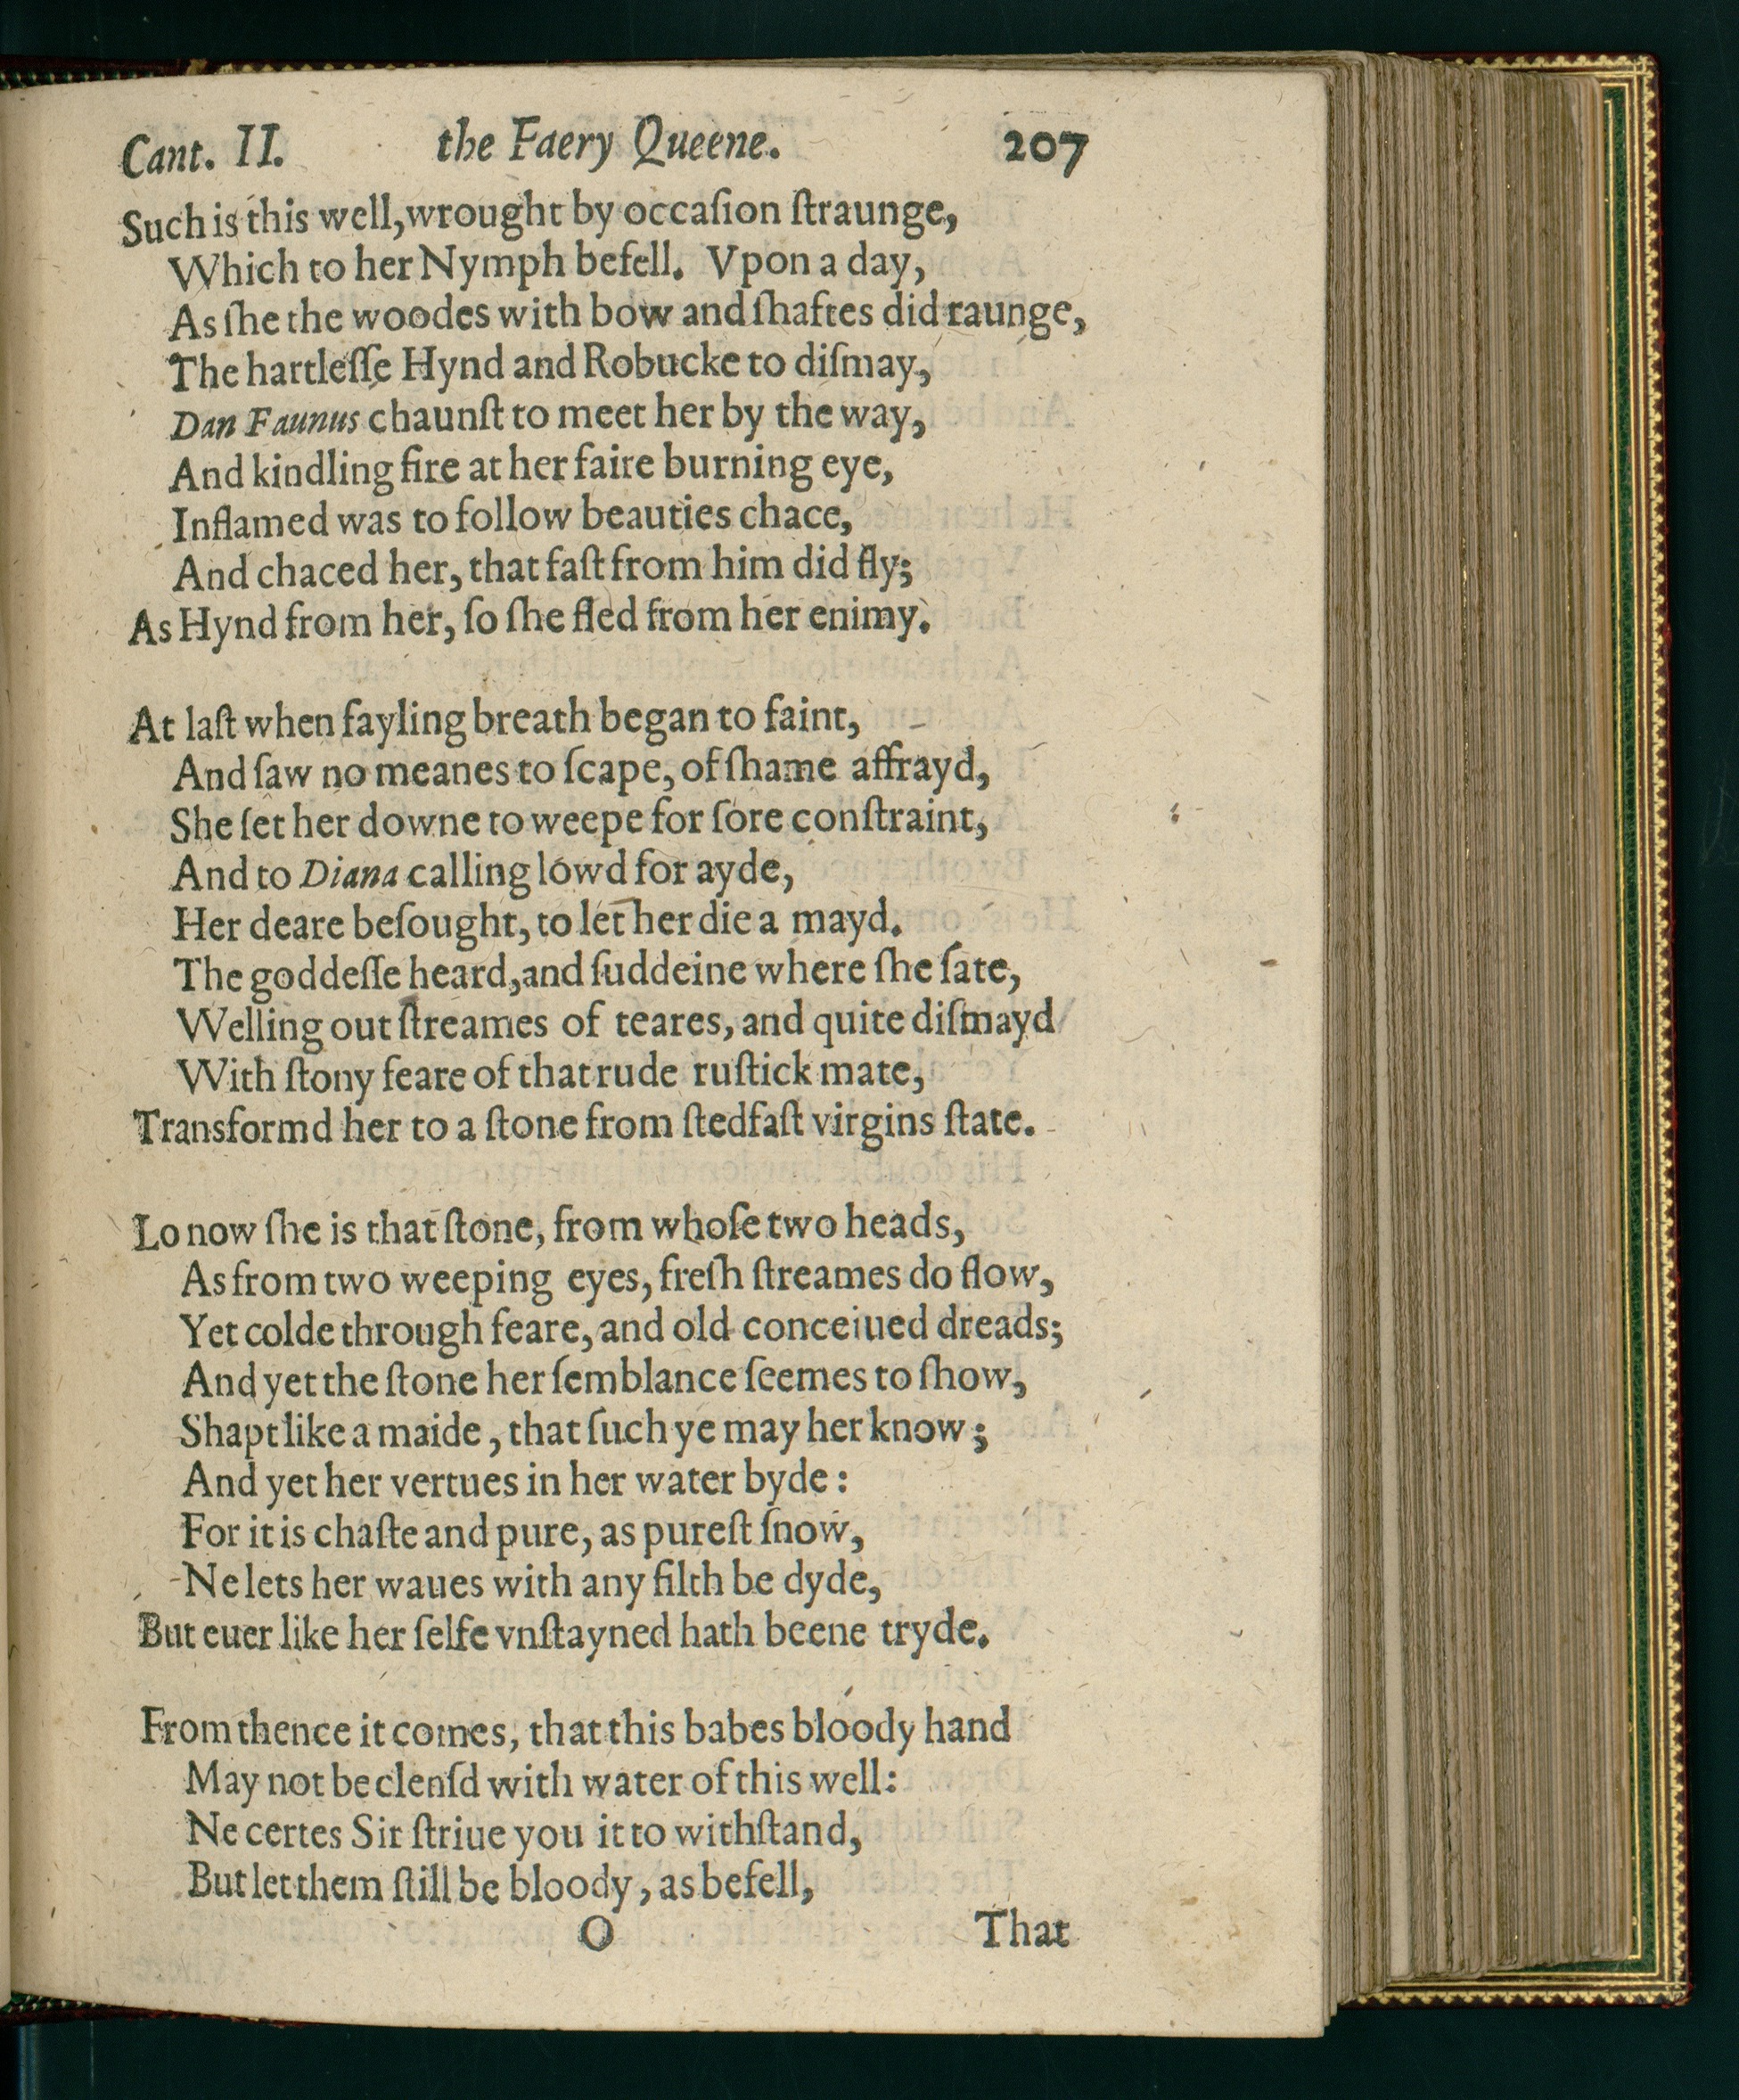 Cant. II. the Faery Queene. 207
Such is this well, wrought by occaſion ſtraunge,
Which to her Nymph befell. Vpon a day,
As ſhe the woodes with bow and ſhaftes did raunge,
The hartleſſe Hynd and Robucke to diſmay,
Dan Faunus chaunſt to meet her by the way,
And kindling fire at her faire burning eye,
Inflamed was to follow beauties chace,
And chaced her, that faſt from him did fly;
As Hynd from her, ſo ſhe fled from her enimy.
At laſt when fayling breath began to faint,
And ſaw no meanes to ſcape, of ſhame affrayd,
She ſet her downe to weepe for ſore conſtraint,
And to Diana calling lowd for ayde,
Her deare beſought, to let her die a mayd.
The goddeſſe heard, and ſuddeine where ſhe ſate,
Welling out ſtreames of teares, and quite diſmayd
With ſtony feare of that rude ruſtick mate,
Transformd her to a ſtone from ſtedfaſt virgins ſtate.
Lo now ſhe is that ſtone, from whoſe two heads,
As from two weeping eyes, freſh ſtreames do flow,
Yet colde through feare, and old conceiued dreads;
And yet the ſtone her ſemblance ſeemes to ſhow,
Shapt like a maide, that ſuch ye may her know;
And yet her vertues in her water byde:
For it is chaſte and pure, as pureſt ſnow,
Ne lets her waues with any filth be dyde,
But euer like her ſelfe vnſtayned hath beene tryde.
From thence it comes, that this babes bloody hand
May not be clenſd with water of this well:
Ne certes Sir ſtriue you it to withſtand,
But let them ſtill be bloody, as befell,
O That